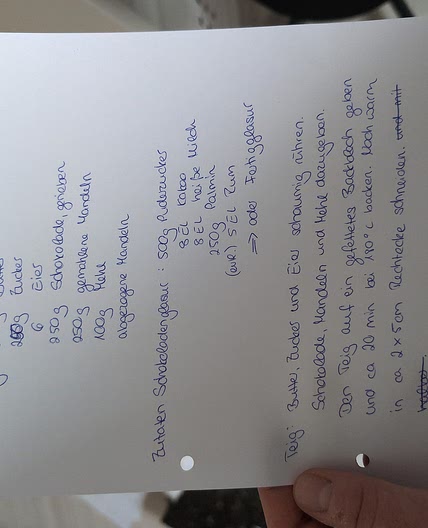 g Butter
250g Zucker
6 Eier
250g Schokolade, gerieben
250g gemahlene Mandeln
100g Mehl
abgezogene Mandeln
Zutaten Schokoladenglasur: 500g Puderzucker
8 EL Kakao
8 EL heiße Milch
250g Palmin
(evtl.) 5 EL Rum
=> oder Fertigglasur
Teig: Butter, Zucker und Eier schaumig rühren.
Schokolade, Mandeln und Mehl dazugeben.
Den Teig auf ein gefettetes Backblech geben
und ca 20 min bei 190°C backen. Noch warm
in ca 2 x 5cm Rechtecke schneiden. und mit